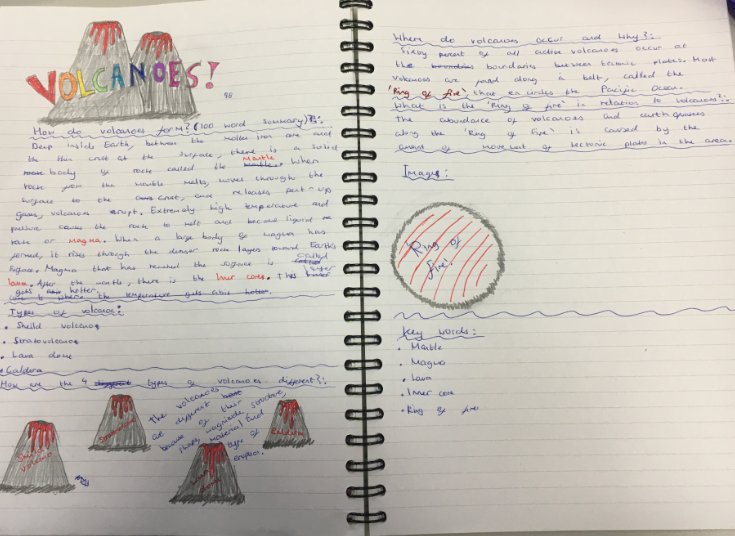 VOLCANOES!
How do volcanoes form? (100 word summary):
Deep inside Earth, between the molten iron core and
the thin crust at the surface, there is a solid
body of rock called the Mantle. When
rock from the mantle melts, moves through the
surface to the crust, and releases pent-up
gases, volcanoes erupt. Extremely high temperature and
pressure cause the rock to melt and become liquid
rock or magma. When a large body of magma has
formed, it rises through the denser rock layers toward Earth's
surface. Magma that has reached the surface is called
lava. After the mantle, there is the Inner core. This
is where the temperature gets hotter.
Types of volcanoe:
• Sheild volcanoe
• Stratovolcanoe
• Lava dome
• Caldera
How are the 4 types of volcanoes different?:
The volcanoes
are different
because of their
shape, magnitude, structure,
material and
type of
eruption.
Sheild
Volcano
Caldera
Where do volcanoes occur and why?:
Sixty percent of all active volcanoes occur at
the boundaries between tectonic plates. Most
volcanoes are found along a belt, called the
'Ring of fire', that encircles the Pacific Ocean.
What is the 'Ring of fire' in relation to volcanoes?:
The abundance of volcanoes and earthquakes
along the 'Ring of Fire' is caused by the
amount of movement of tectonic plates in the area.
Images:
Ring of
fire.
Key words:
• Mantle
• Magma
• Lava
• Inner core
• Ring of fire